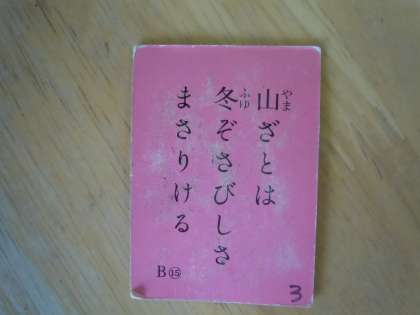 山ざとは
やま
冬ぞさびしさ
ふゆ
まさりける
B⑮
3